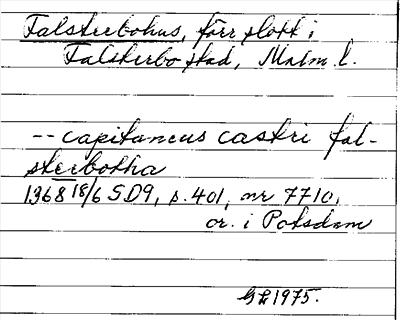 Falsterbohus, förr slott i
Falsterbo stad, Malm. l.
-- capitaneus castri fal-
sterbotha
1368 18/6 SD9, s. 401, nr 7710,
or. i Potsdam
GL 1975.